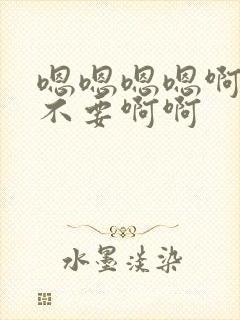 嗯嗯嗯嗯啊
不要啊啊
水墨淡染